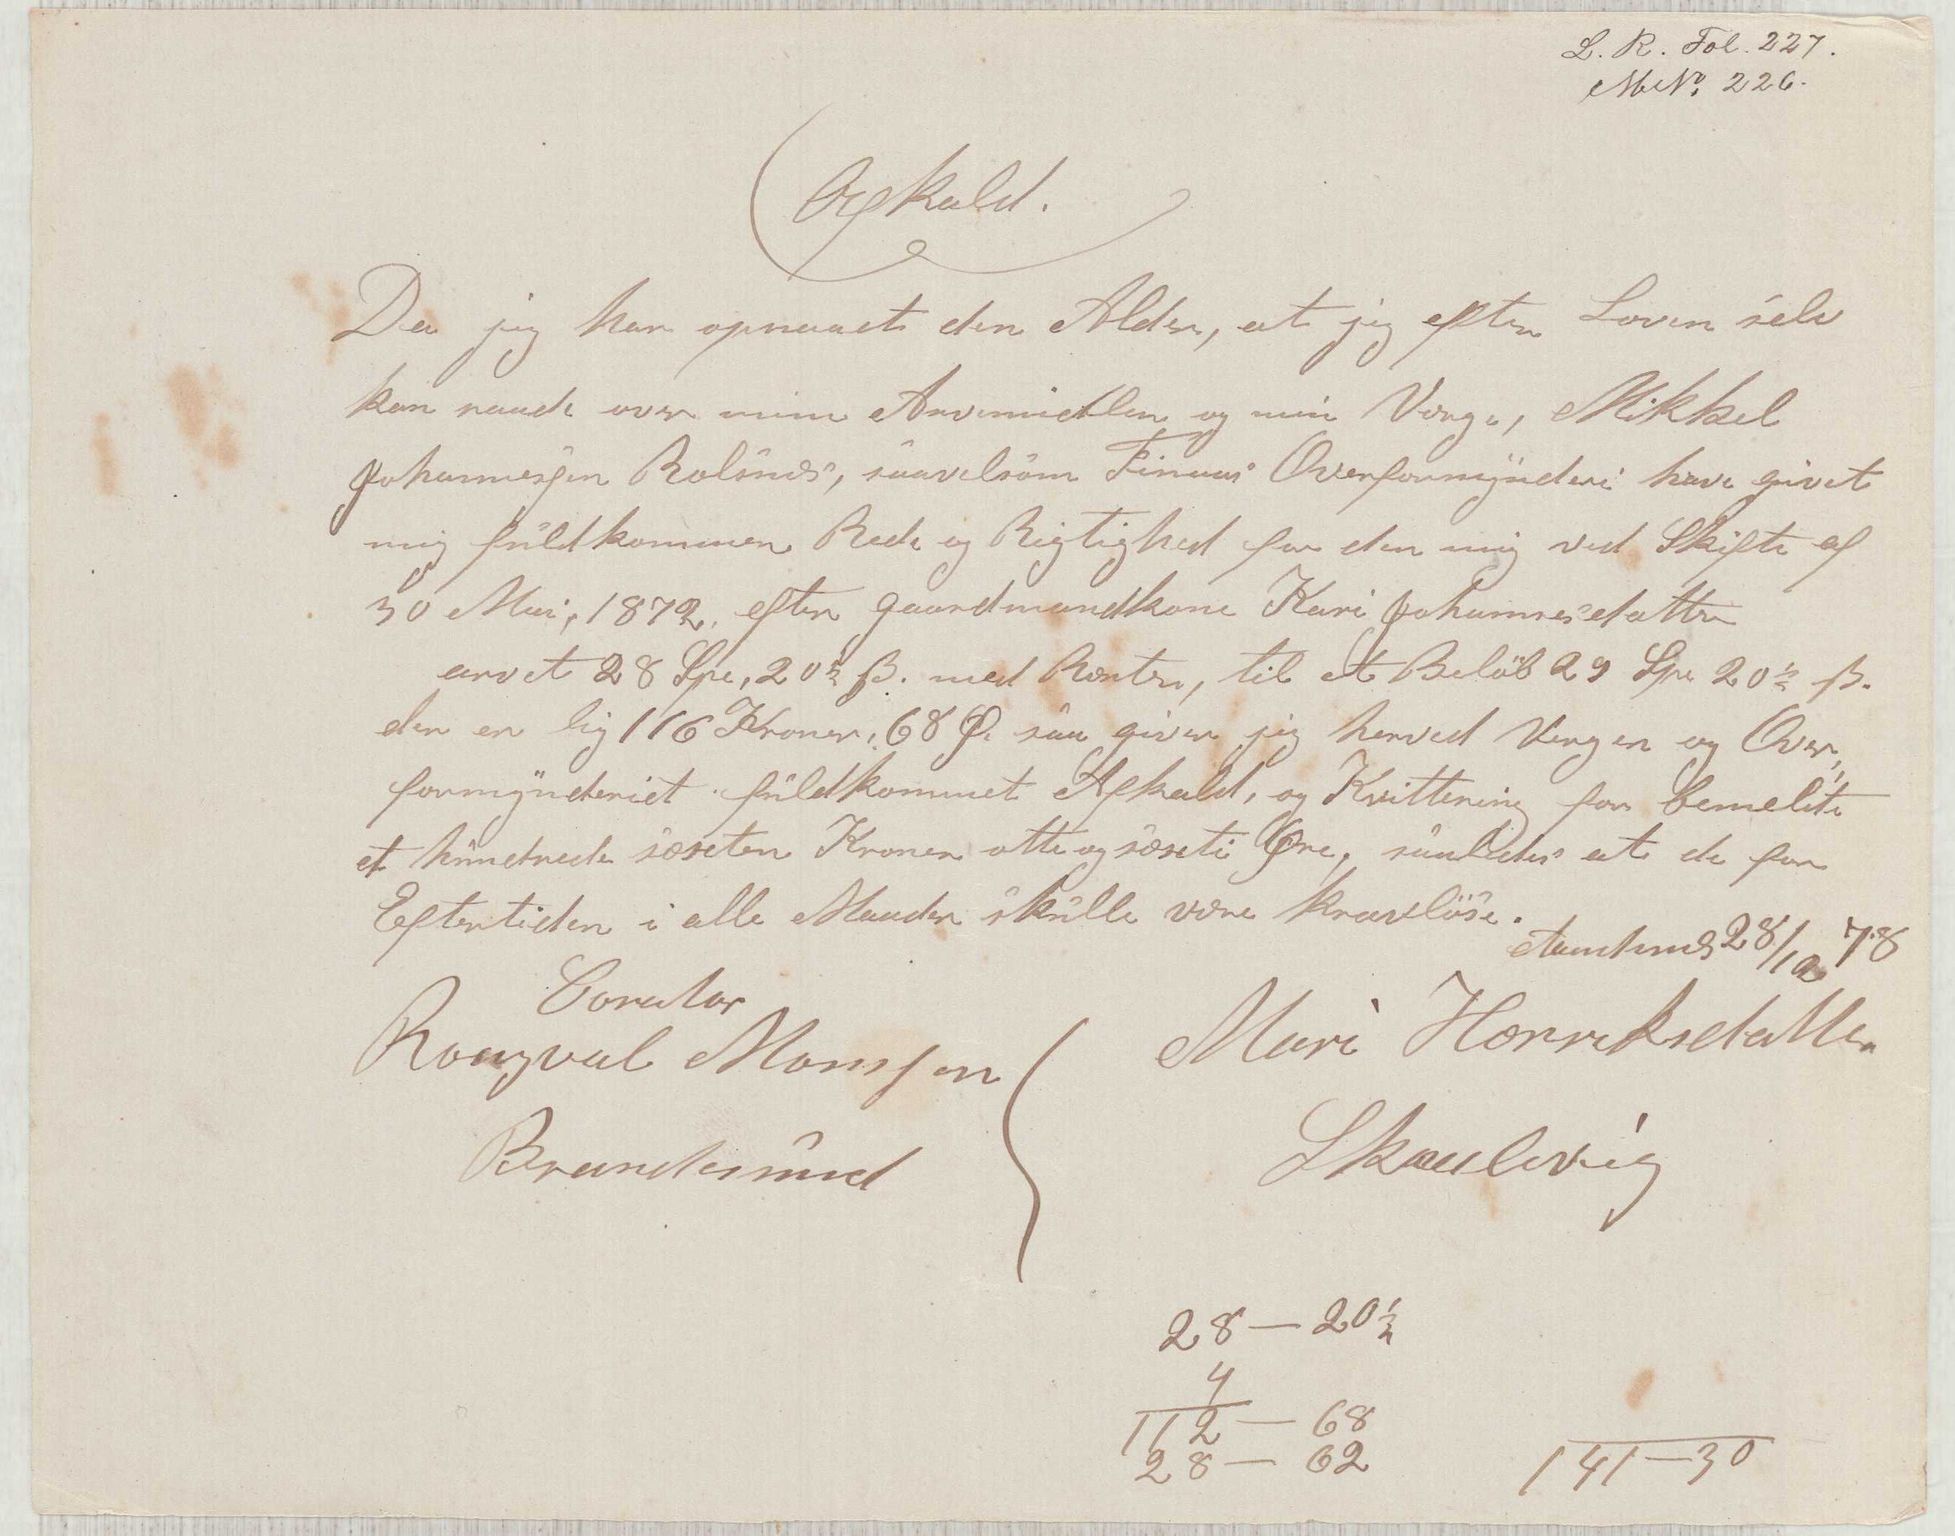 L. R. Fol. 227.
M No. 226.
Afkald.
Da jeg har opnaaet den Alder, at jeg efter Loven selv
kan raade over mine Arvemidler og min Verge, Mikkel
Johannesſen Rolsnæs, saavelsom Finaas Overformynderi have givet
mig fuldkommen Rede og Rigtighed for den mig ved Skifte af
30 Mai, 1872, efter Gaardmandkone Kari Johannesdatter
arvet 28 Spe, 20½ ß. med Renter, til et Beløb 29 Spe 20½ ß.
der er lig 116 Kroner, 68 Ø. saa giver jeg herved Vergen og Over,,
formynderiet fuldkommet Afkald, og Kvittering for bemeldte
et hundrede sexten Kroner otte og sexti Øre, saaledes at de for
Eftertiden i alle Maader skulle være kravløse.
28/10 78
Corator
Roagval Monsſen
Brandesund
Mari Henriksdatter
Skaulevig
28 — 20½
4
112 — 68
28 — 62
141 — 30